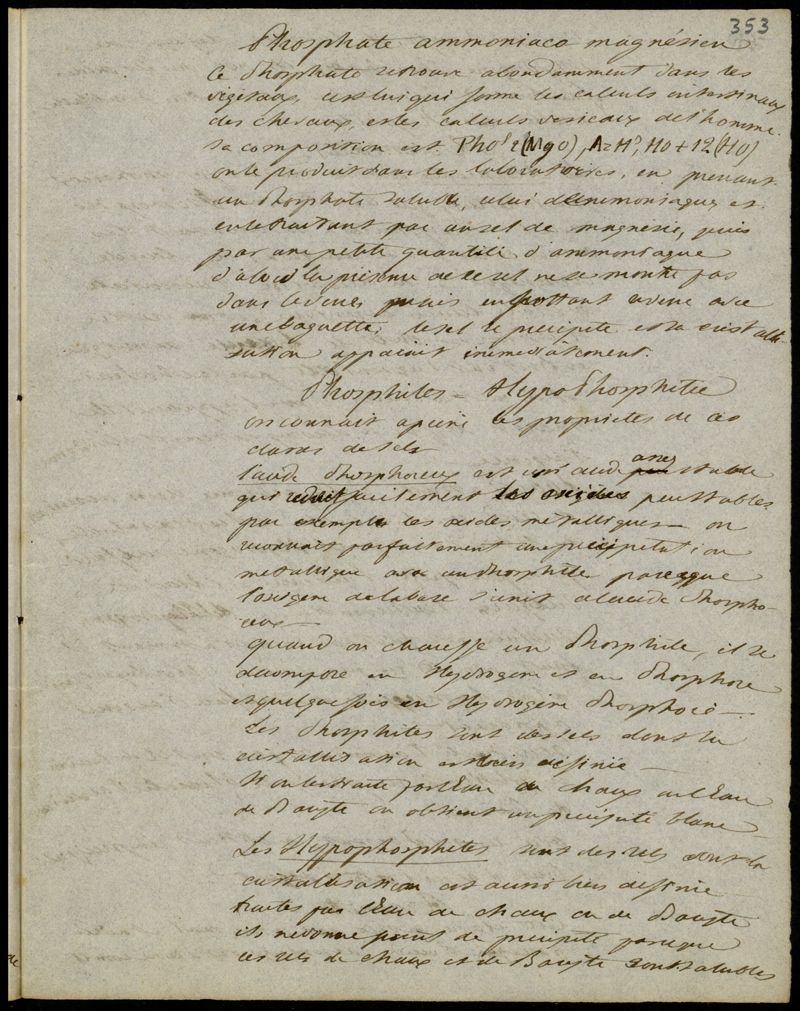 353
Phosphate ammoniaco magnésien
Ce Phosphate se trouve abondamment dans les
végétaux, c'est lui qui forme les calculs intestinaux
des chevaux, et les calculs vesicaux de l'homme.
sa composition est Pho⁵ 2(MgO), AzH³, HO + 12(HO)
on le produit dans les laboratoires, en prenant
un Phosphate soluble, celui d'ammoniaque, et
en le traitant par un sel de magnésie, puis
par une petite quantité d'ammoniaque
d'abord la présence de ce sel ne se montre pas
dans le verre, mais en frottant le verre avec
une baguette, le sel se précipite et sa cristalli-
sation apparait immediatement.
Phosphites - Hypo Phosphites
on connait a peine les proprietes de ces
classes de sels
l'acide Phosphoreux est un acide assez stable
qui réduit facilement les oxides peu stables
par exemple les oxides métalliques - on
reconnait parfaitement une précipitation
métallique avec un Phosphite parceque
l'oxigène de la base s'unit a l'acide Phospho-
reux -
quand on chauffe un Phosphite, il se
décompose en Hydrogène et en Phosphore
et quelquefois en Hydrogène Phosphoré -
Les Phosphites sont des sels dont la
cristallisation est bien définie -
si on les traite par l'Eau de chaux ou l'Eau
de Baryte on obtient un précipité blanc -
Les Hypophosphites sont des sels dont la
cristallisation est aussi bien définie
traités par l'Eau de chaux ou de Baryte
ils ne donnent point de précipité parceque
ces sels de chaux et de Baryte sont solubles